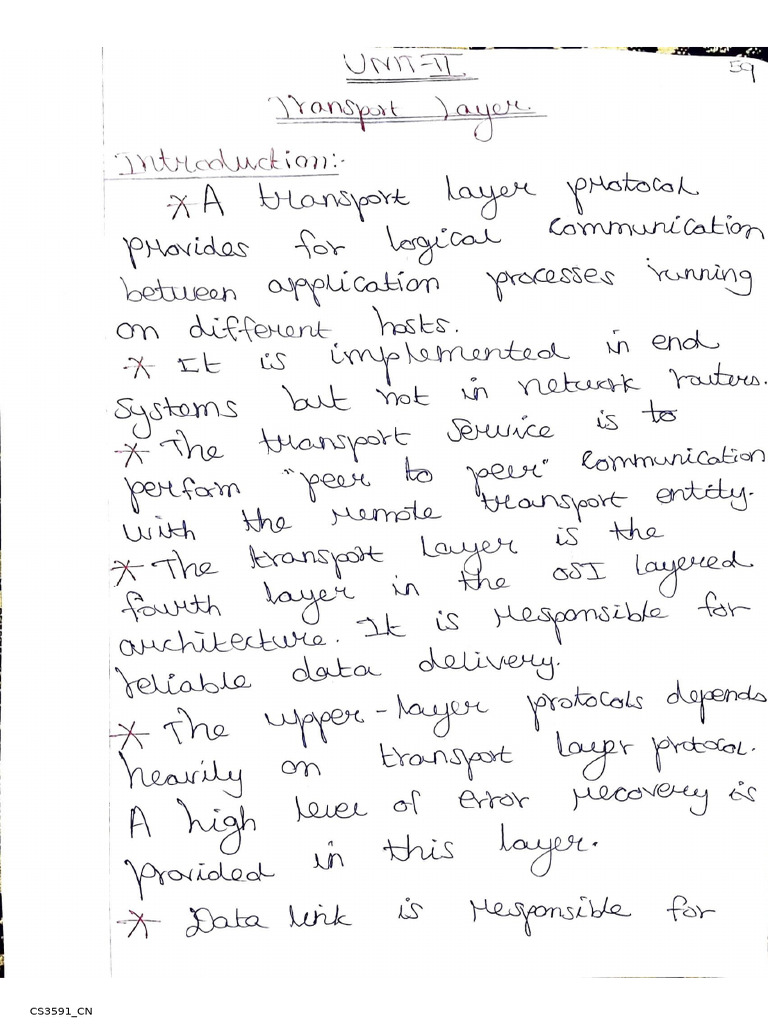 UNIT-II
59
Transport Layer.
Introduction:-
* A transport layer protocol
provides for logical communication
between application processes running
on different hosts.
* It is implemented in end
systems but not in network routers.
* The transport service is to
perfom "peer to peer" communication
with the remote transport entity.
* The transport layer is the
fourth layer in the OSI layered
architecture. It is responsible for
reliable data delivery.
* The upper-layer protocols depends
heavily on transport layer protocol.
A high level of error recovery is
provided in this layer.
* Data link is responsible for
CS3591_CN